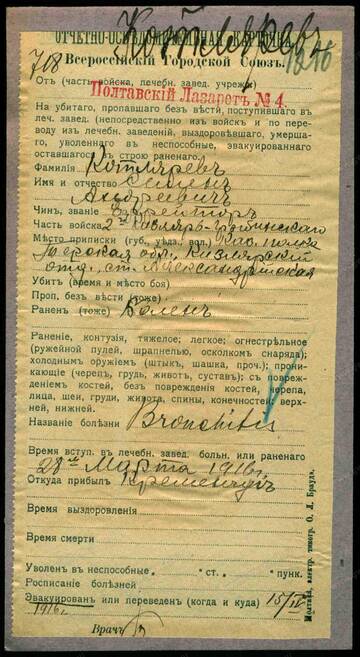 Котляревъ
ОТЧЕТНО-ОСВѢДОМИТЕЛЬНАЯ КАРТОЧКА
708
1216
Всероссійскій Городской Союзъ.
Отъ (часть войска, лечебн. завед. учрежд.)
Полтавскій Лазаретъ № 4.
На убитаго, пропавшаго безъ вѣсти, поступившаго въ
леч. завед. (непосредственно изъ войскъ и по пере-
воду изъ лечебн. заведеній, выздоровѣвшаго, умерша-
го, уволеннаго въ неспособные, эвакуированнаго
оставшагося въ строю раненаго.
Фамилія Котляревъ
Имя и отчество Семенъ
Андреевичъ
Чинъ, званіе Ефрейторъ
Часть войска 2го Кизляро-Гребенскаго
Мѣсто приписки (губ., уѣзд., вол.) Каз. полка
Терская обл., Кизлярскій
отд., ст. Александрійская
Убитъ (время и мѣсто боя)
Проп. безъ вѣсти (тоже)
Раненъ (тоже) Боленъ
Раненіе, контузія, тяжелое; легкое; огнестрѣльное
(ружейной пулей, шрапнелью, осколкомъ снаряда);
холоднымъ оружіемъ (штыкъ, шашка, проч.); прони-
кающіе (черепъ, грудь, животъ, суставъ); съ повреж-
деніемъ костей, безъ поврежденія костей, черепа,
лица, шеи, груди, живота, спины, конечностей: верх-
ней, нижней.
Названіе болѣзни Bronchitis
Время вступ. въ лечебн. завед. больн. или раненаго
28го Марта 1916 г.
Откуда прибылъ Кременчугъ
Время выздоровленія
Время смерти
Уволенъ въ неспособные . . ст. . пунк.
Росписаніе болѣзней
Эвакуированъ или переведенъ (когда и куда) 15/IV
1916 г.
Врачъ
Полтава, электр. типогр. О. Л. Брауде.